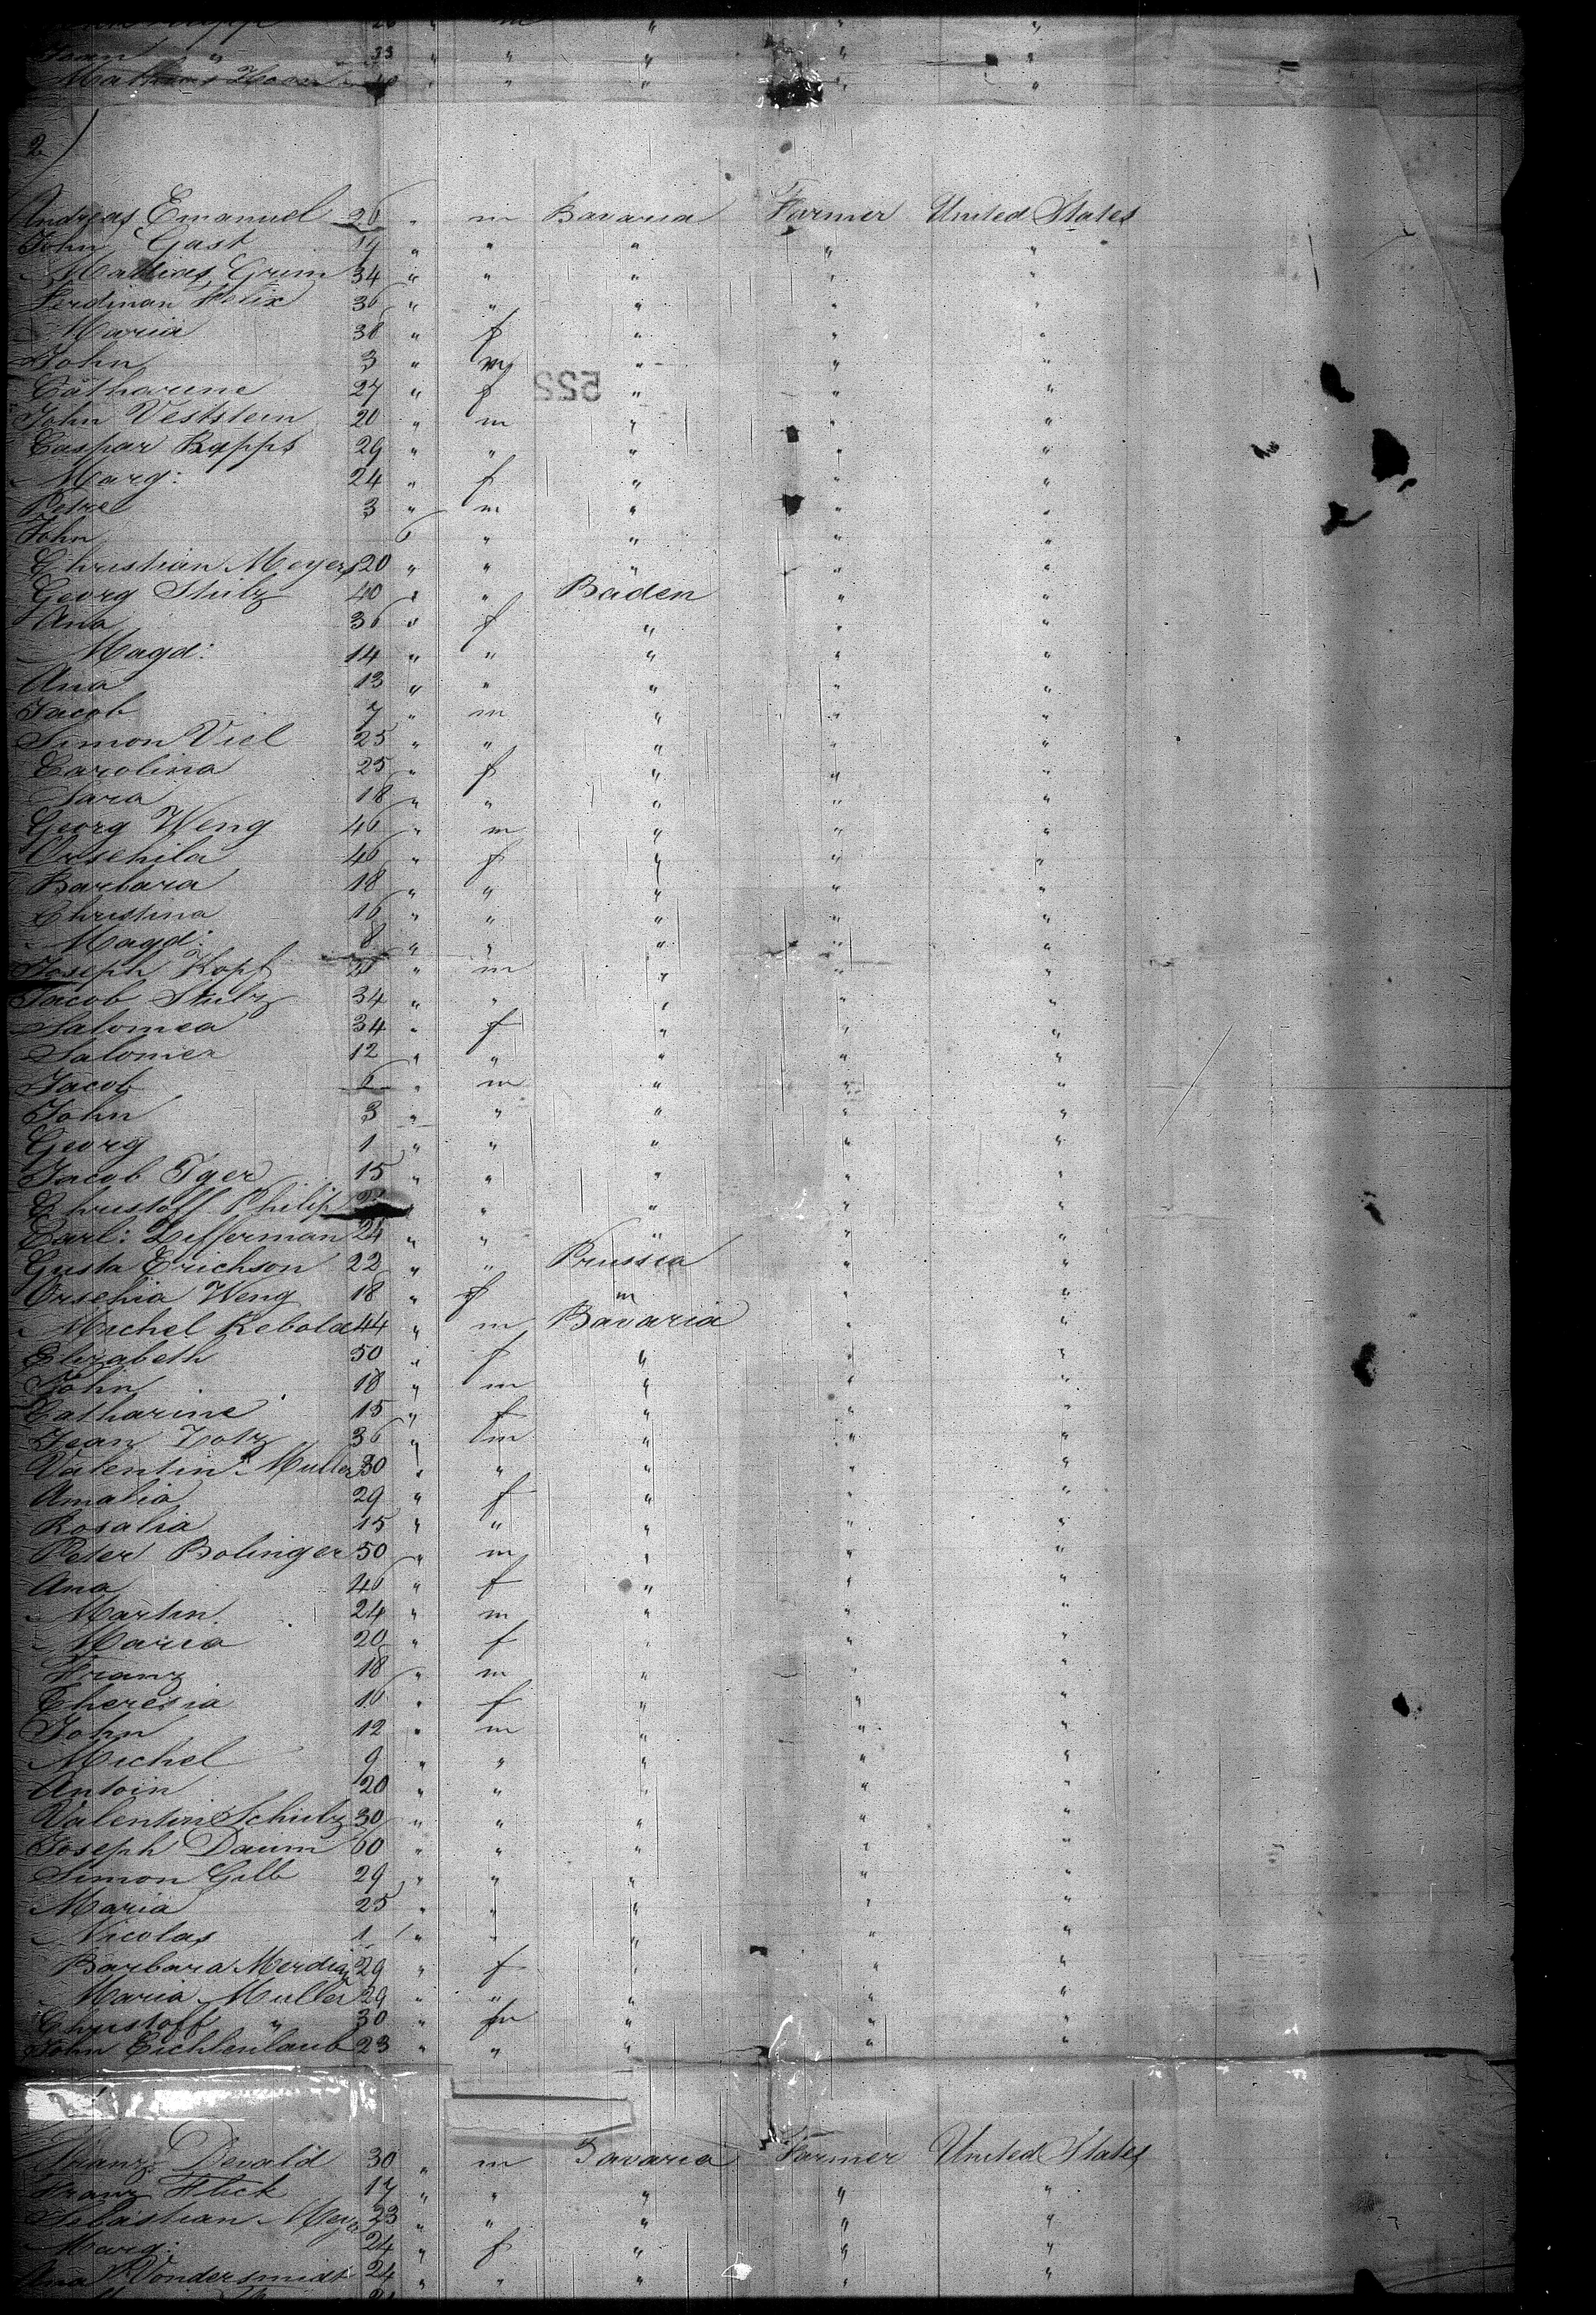 26 " m " " "
Jean " 33 " " " " "
" " " " "
2)
Andreas Emanuel 26 " m Bavaria Farmer United States
John Gast 19 " " " " "
Mathias Grim 34 " " " " "
Ferdinan Felix 36 " " " " "
Maria 38 " f " " "
John 3 " m " " "
Catharine 27 " f " " "
John Veststein 20 " m " " "
Caspar Rapps 29 " " " " "
Marg: 24 " f " " "
Petre 3 " m " " "
John 6 " " " "
Christian Meyers 20 " " " " "
Georg Stulz 40 " " Baden " "
Ana 36 " f " " "
Magd: 14 " " " " "
Ana 13 " " " " "
Jacob 7 " m " " "
Simon Viel 25 " " " " "
Carolina 25 " f " " "
Sara 18 " " " " "
Georg Weng 46 " m " " "
Orsehila 46 " f " " "
Barbara 18 " " " " "
Christina 16 " " " " "
Magd: 8 " " " " "
Joseph Kopf " m " " "
Jacob Stulz 34 " " " " "
Salomea 34 " f " " "
Salomea 12 " " " " "
Jacob 6 " m " " "
John 3 " " " " "
Georg 1 " " " " "
Jacob Iger 15 " " " " "
Christoff Philip " " " "
Carl: Lifferman 24 " " " " "
Gusta Erichson 22 " " Prussia " "
Orsehia Weng 18 " f " " "
Michel Rebold 44 " m Bavaria " "
Elizabeth 50 " f " " "
John 18 " m " " "
Catharine 15 " f " " "
Jean Lotz 36 " m " " "
Valentin Muller 30 " " " " "
Amalia 29 " f " " "
Rosalia 15 " " " " "
Peter Bolinger 50 " m " " "
Ana 46 " f " " "
Martin 24 " m " " "
Maria 20 " f " " "
Franz 18 " m " " "
Theresia 16 " f " " "
John 12 " m " " "
Michel 9 " " " " "
Antoin 20 " " " " "
Valentin Schulz 30 " " " " "
Joseph Daum 60 " " " " "
Simon Gilb 29 " " " " "
Maria 25 " " " " "
Nicolas 1 " " " " "
Barbara Merdian 29 " f " " "
Maria Muller 29 " " " " "
Christoff " 30 " m " " "
John Eichlenlaub 23 " " " " "
Franz Dewald 30 " m Bavaria Farmer United States
Franz Flick 17 " " " " "
Sebastian Meyer 23 " " " " "
Marg: 24 " f " " "
Ana Vondersmidt 24 " " " " "